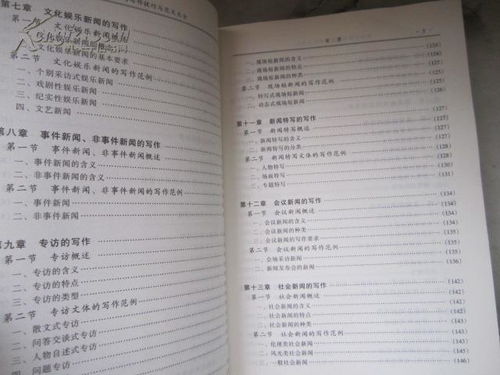 第七章 文化娱乐新闻的写作
第一节 文化娱乐新闻概述
二、文化娱乐新闻的基本要求
第二节 文化娱乐新闻的写作范例
一、个别采访式娱乐新闻
二、戏剧性娱乐新闻
三、纪实性娱乐新闻
四、文艺新闻
第八章 事件新闻、非事件新闻的写作
第一节 事件新闻、非事件新闻概述
一、事件新闻的含义
二、非事件新闻的含义
第二节 事件新闻、非事件新闻的写作范例
一、事件新闻
二、非事件新闻
第九章 专访的写作
第一节 专访概述
一、专访的含义
二、专访的特点
三、专访的类型
第二节 专访文体的写作范例
一、散文式专访
二、问答交谈式专访
三、人物自述式专访
四、问题专访
一、现场短新闻的含义
二、现场短新闻的特点
三、现场短新闻的种类
第二节 现场短新闻的写作范例
一、特写式现场短新闻
二、动态式现场短新闻
第十一章 新闻特写的写作
第一节 新闻特写概述
一、新闻特写的含义
二、新闻特写的分类
第二节 新闻特写文体的写作范例
一、人物特写
二、场面特写
三、专题特写
第十二章 会议新闻的写作 (134)
第一节 会议新闻概述 (134)
一、会议新闻的含义 (134)
二、会议新闻的种类 (134)
三、会议新闻的写作要求
第二节 会议新闻的写作范例
一、会场采访新闻
二、新闻发布会的新闻
第十三章 社会新闻的写作 (142)
第一节 社会新闻概述 (142)
一、社会新闻的含义 (142)
二、社会新闻的特点 (142)
三、社会新闻的种类 (142)
第二节 社会新闻的写作范例
一、伦理类社会新闻
二、风光类社会新闻
三、一般社会新闻 (146)